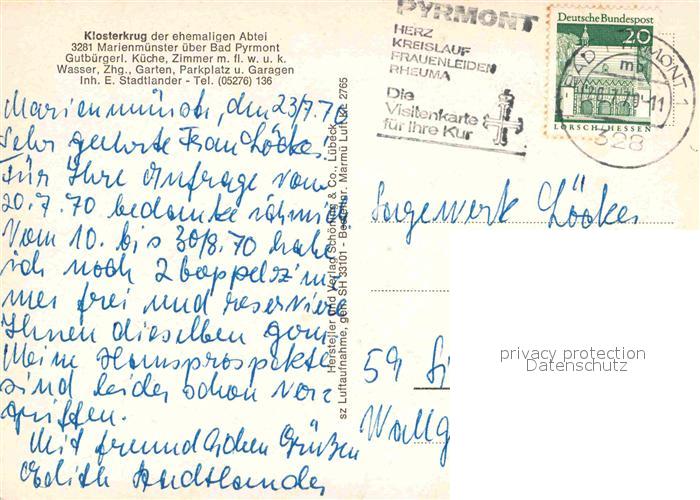 Klosterkrug der ehemaligen Abtei
3281 Marienmünster über Bad Pyrmont
Gutbürgerl. Küche, Zimmer m. fl. w. u. k.
Wasser, Zhg., Garten, Parkplatz u. Garagen
Inh. E. Stadtlander - Tel. (05276) 136
Marienmünster, den 23/7.70
Sehr geehrte Frau Lööke!
Für Ihre Anfrage vom
20.7.70 bedanke ich mich.
Vom 10. bis 30/8.70 habe
ich noch 2 Doppelzim
mer frei und reserviere
Ihnen dieselben gern.
Meine Hausprospekte
sind leider schon ver=
griffen.
Mit freundlichen Grüßen
Edith Stadtlander
Hersteller und Verlag Schöning & Co., Lübeck
sz Luftaufnahme, gen. SH 33101 - Bestellnr. Marmü Luft 2765
PYRMONT
HERZ
KREISLAUF
FRAUENLEIDEN
RHEUMA
Die
Visitenkarte
für Ihre Kur
Deutsche Bundespost
20
LORSCH/HESSEN
BAD PYRMONT 1
mb
-11
328
Sagewerk Lööke
59 Si
Wallg
privacy protection
Datenschutz